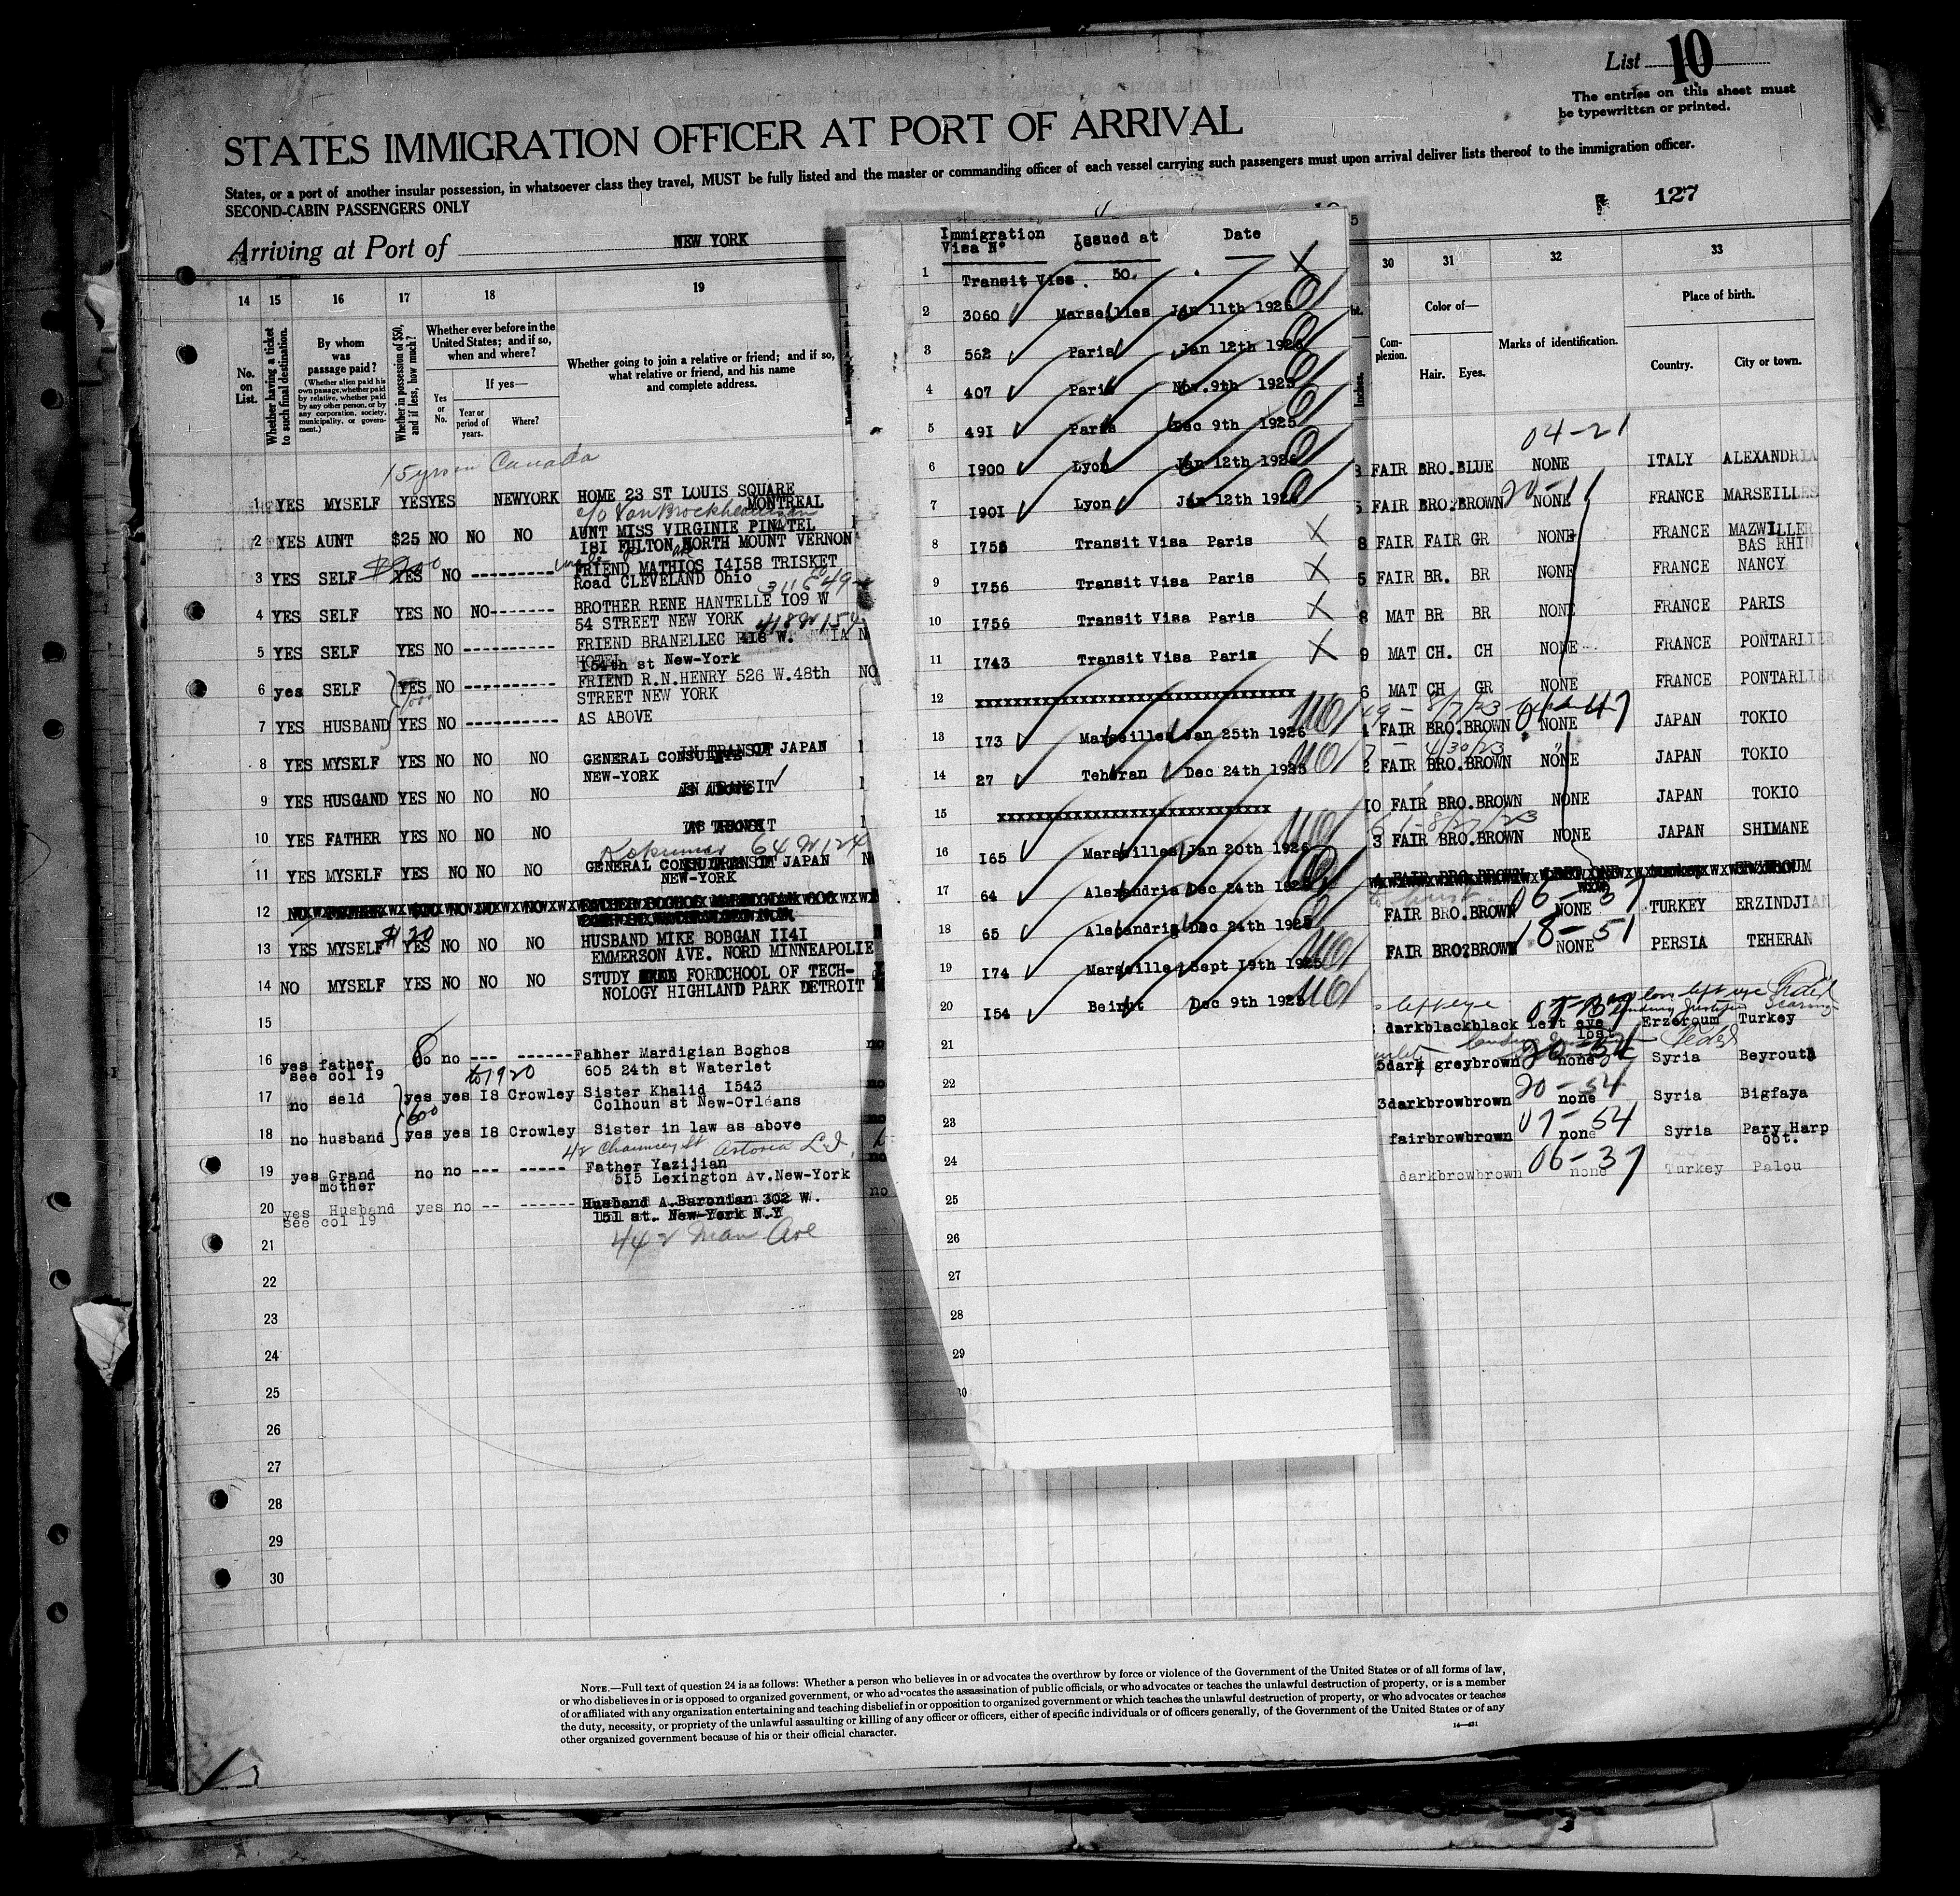 List 10
The entries on this sheet must
be typewritten or printed.
STATES IMMIGRATION OFFICER AT PORT OF ARRIVAL
States, or a port of another insular possession, in whatsoever class they travel, MUST be fully listed and the master or commanding officer of each vessel carrying such passengers must upon arrival deliver lists thereof to the immigration officer.
SECOND-CABIN PASSENGERS ONLY
127
Arriving at Port of NEW YORK
14 15 16 17 18 19
No. on List.
Whether having a ticket to such final destination.
By whom was passage paid?
(Whether alien paid his own passage, whether paid by relative, whether paid by any other person, or by any corporation, society, municipality, or government.)
Whether in possession of $50, and if less, how much?
Whether ever before in the United States; and if so, when and where?
Yes or No.
If yes—
Year or period of years.
Where?
Whether going to join a relative or friend; and if so, what relative or friend, and his name and complete address.
15 yrs in Canada
1 YES MYSELF YES YES NEWYORK HOME 23 ST LOUIS SQUARE
MONTREAL
2 YES AUNT $25 NO NO NO AUNT MISS VIRGINIE PINATEL
181 FULTON NORTH MOUNT VERNON
3 YES SELF YES NO ---------- FRIEND MATHIOS I4I58 TRISKET
Road CLEVELAND Ohio
4 YES SELF YES NO NO------- BROTHER RENE HANTELLE IO9 W
54 STREET NEW YORK
5 YES SELF YES NO ---------- FRIEND BRANELLEC 418 W.
HOTEL
154th st New-York
6 yes SELF YES NO ---------- FRIEND R.N.HENRY 526 W.48th NO
STREET NEW YORK
7 YES HUSBAND YES NO ---------- AS ABOVE
8 YES MYSELF YES NO NO NO GENERAL CONSULATE OF JAPAN
IN TRANSIT
NEW-YORK
9 YES HUSGAND YES NO NO NO IN TRANSIT
10 YES FATHER YES NO NO NO IN TRANSIT
64 W 124
11 YES MYSELF YES NO NO GENERAL CONSULATE OF JAPAN
NEW-YORK
12
13 YES MYSELF $20 YES NO NO NO HUSBAND MIKE BOBGAN II4I
EMMERZON AVE. NORD MINNEAPOLIE
14 NO MYSELF YES NO NO NO STUDY FORDCHOOL OF TECH-
NOLOGY HIGHLAND PARK DETROIT
15
16 yes father no no --- ------Father Mardigian Boghos no
see col 19 605 24th st Waterlet
to 1920
17 no seld yes yes I8 Crowley Sister Khalid I543 no
600 Colhoun st New-Orléans
18 no husband yes yes I8 Crowley Sister in law as above no
42 Chauncey St Astoria L.I.
19 yes Grand no no --- ----- Father Yazijian no
mother 5I5 Lexington Av.New-York
20 yes Husband yes no -- ------Husband A.Baronian 302 W. no
see col 19 151 st. New-York N.Y
442 Ave
21
22
23
24
25
26
27
28
29
30
Immigration Visa N° Issued at Date
1 Transit Visa 50. X
2 3060 Marseilles Jan 11th 1926
3 562 Paris Jan 12th 1926
4 407 Paris Nov.9th 1925
5 491 Paris Dec 9th 1925
6 I900 Lyon Jan 12th 1926
7 I90I Lyon Jan 12th 1926
8 I755 Transit Visa Paris X
9 I756 Transit Visa Paris X
10 I756 Transit Visa Paris X
11 I743 Transit Visa Paris X
12 xxxxxxxxxxxxxxxxxxxxxxxxxxxxxxxxx
13 I73 Marseilles Jan 25th 1926
14 27 Teheran Dec 24th 1925
15 xxxxxxxxxxxxxxxxxxxxxxxxxxxx
16 I65 Marseilles Jan 20th 1926
17 64 Alexandria Dec 24th 1925
18 65 Alexandria Dec 24th 1925
19 I74 Marseille Sept 19th 1925
20 I54 Beirut Dec 9th 1925
21
22
23
24
25
26
27
28
29
30
30 31 32 33
Complexion.
Color of—
Hair. Eyes.
Marks of identification.
Place of birth.
Country. City or town.
04-21
FAIR BRO.BLUE NONE ITALY ALEXANDRIA
FAIR BRO.BROWN NONE FRANCE MARSEILLES
8 FAIR FAIR GR NONE FRANCE MAZWILLER
BAS RHIN
5 FAIR BR. BR NONE FRANCE NANCY
8 MAT BR BR NONE FRANCE PARIS
9 MAT CH. CH NONE FRANCE PONTARLIER
6 MAT CH GR NONE FRANCE PONTARLIER
FAIR BRO.BROWN NONE JAPAN TOKIO
4/30/23
2 FAIR BRO.BROWN NONE JAPAN TOKIO
10 FAIR BRO.BROWN NONE JAPAN TOKIO
3 FAIR BRO.BROWN NONE JAPAN SHIMANE
06-37
FAIR BRO.BROWN NONE TURKEY ERZINDJIAN
18-51
FAIR BRO.BROWN NONE PERSIA TEHERAN
left eye
darkblackblack Left eye lost Erzeroum Turkey
20-54
5dark greybrown none Syria Beyrouth
20-54
3darkbrowbrown none Syria Bigfaya
07-54
fairbrowbrown none Syria Pary Harp
oot.
06-37
darkbrowbrown none Turkey Palou
NOTE.—Full text of question 24 is as follows: Whether a person who believes in or advocates the overthrow by force or violence of the Government of the United States or of all forms of law,
or who disbelieves in or is opposed to organized government, or who advocates the assassination of public officials, or who advocates or teaches the unlawful destruction of property, or is a member
of or affiliated with any organization entertaining and teaching disbelief in or opposition to organized government or which teaches the unlawful destruction of property, or who advocates or teaches
the duty, necessity, or propriety of the unlawful assaulting or killing of any officer or officers, either of specific individuals or of officers generally, of the Government of the United States or of any
other organized government because of his or their official character.
14—431